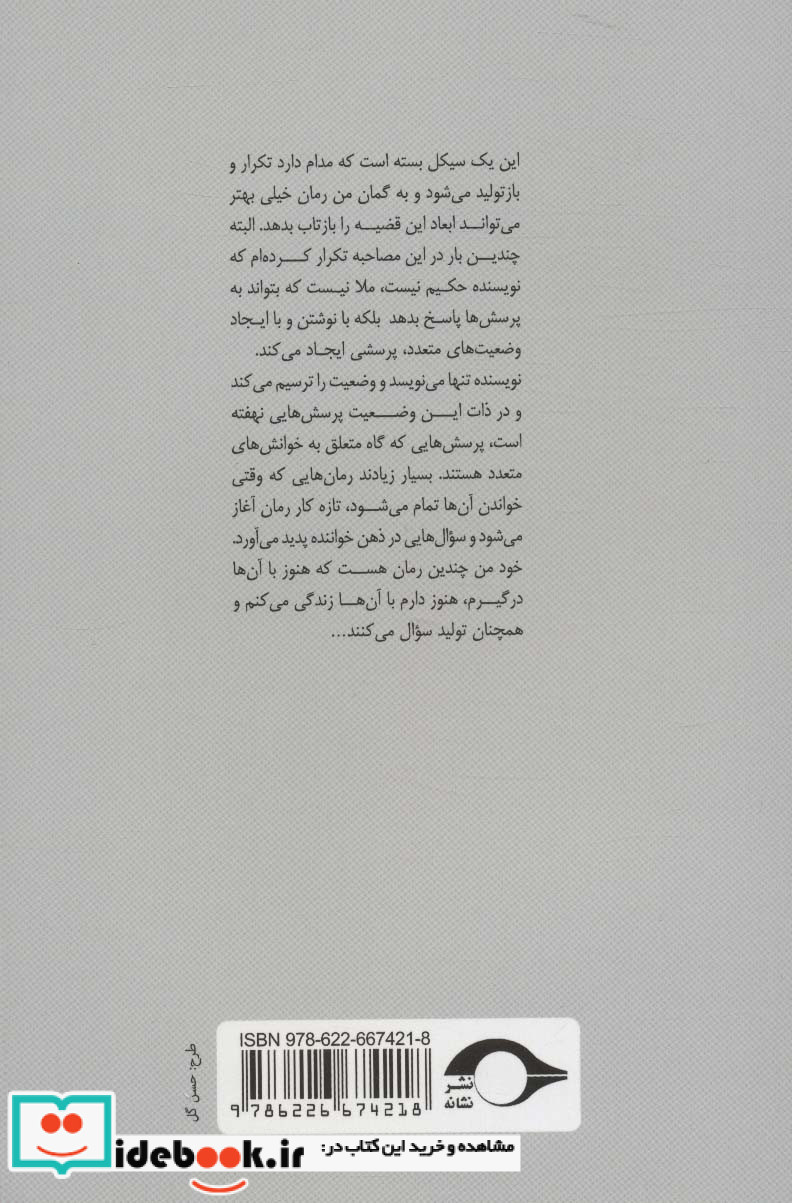 این یک سیکل بسته است که مدام دارد تکرار و
بازتولید می‌شود و به گمان من رمان خیلی بهتر
می‌توانـد ابعاد این قضیـه را بازتاب بدهد. البته
چندیـن بار در این مصاحبه تکرار کـرده‌ام که
نویسنده حکـیم نیست، ملا نیـست که بتواند به
پرسش‌ها پاسـخ بدهد بلکه با نوشتن و با ایـجاد
وضعیت‌های متعدد، پرسشی ایجـاد می‌کند.
نویسنده تنها می‌نویسد و وضعیت را ترسیم می‌کند
و در ذات ایـن وضـعیت پرسش‌هایی نهفته
است، پرسش‌هایی که گاه متعلق به خوانش‌های
متعدد هستند. بسیار زیادند رمان‌هایی که وقتی
خواندن آن‌ها تمام می‌شـود، تازه کار رمان آغاز
می‌شود و سؤال‌هایی در ذهن خواننده پدید می‌آورد.
خود من چندین رمان هسـت که هنوز با آن‌ها
درگیـرم، هنوز دارم با آن‌هـا زندگی می‌کنم و
همچنان تولید سؤال می‌کنند...
طرح: حسن گل
ISBN 978-622-667421-8
9 786226 674218
نشر
نشانه
مشاهده و خرید این کتاب در:
idebook.ir